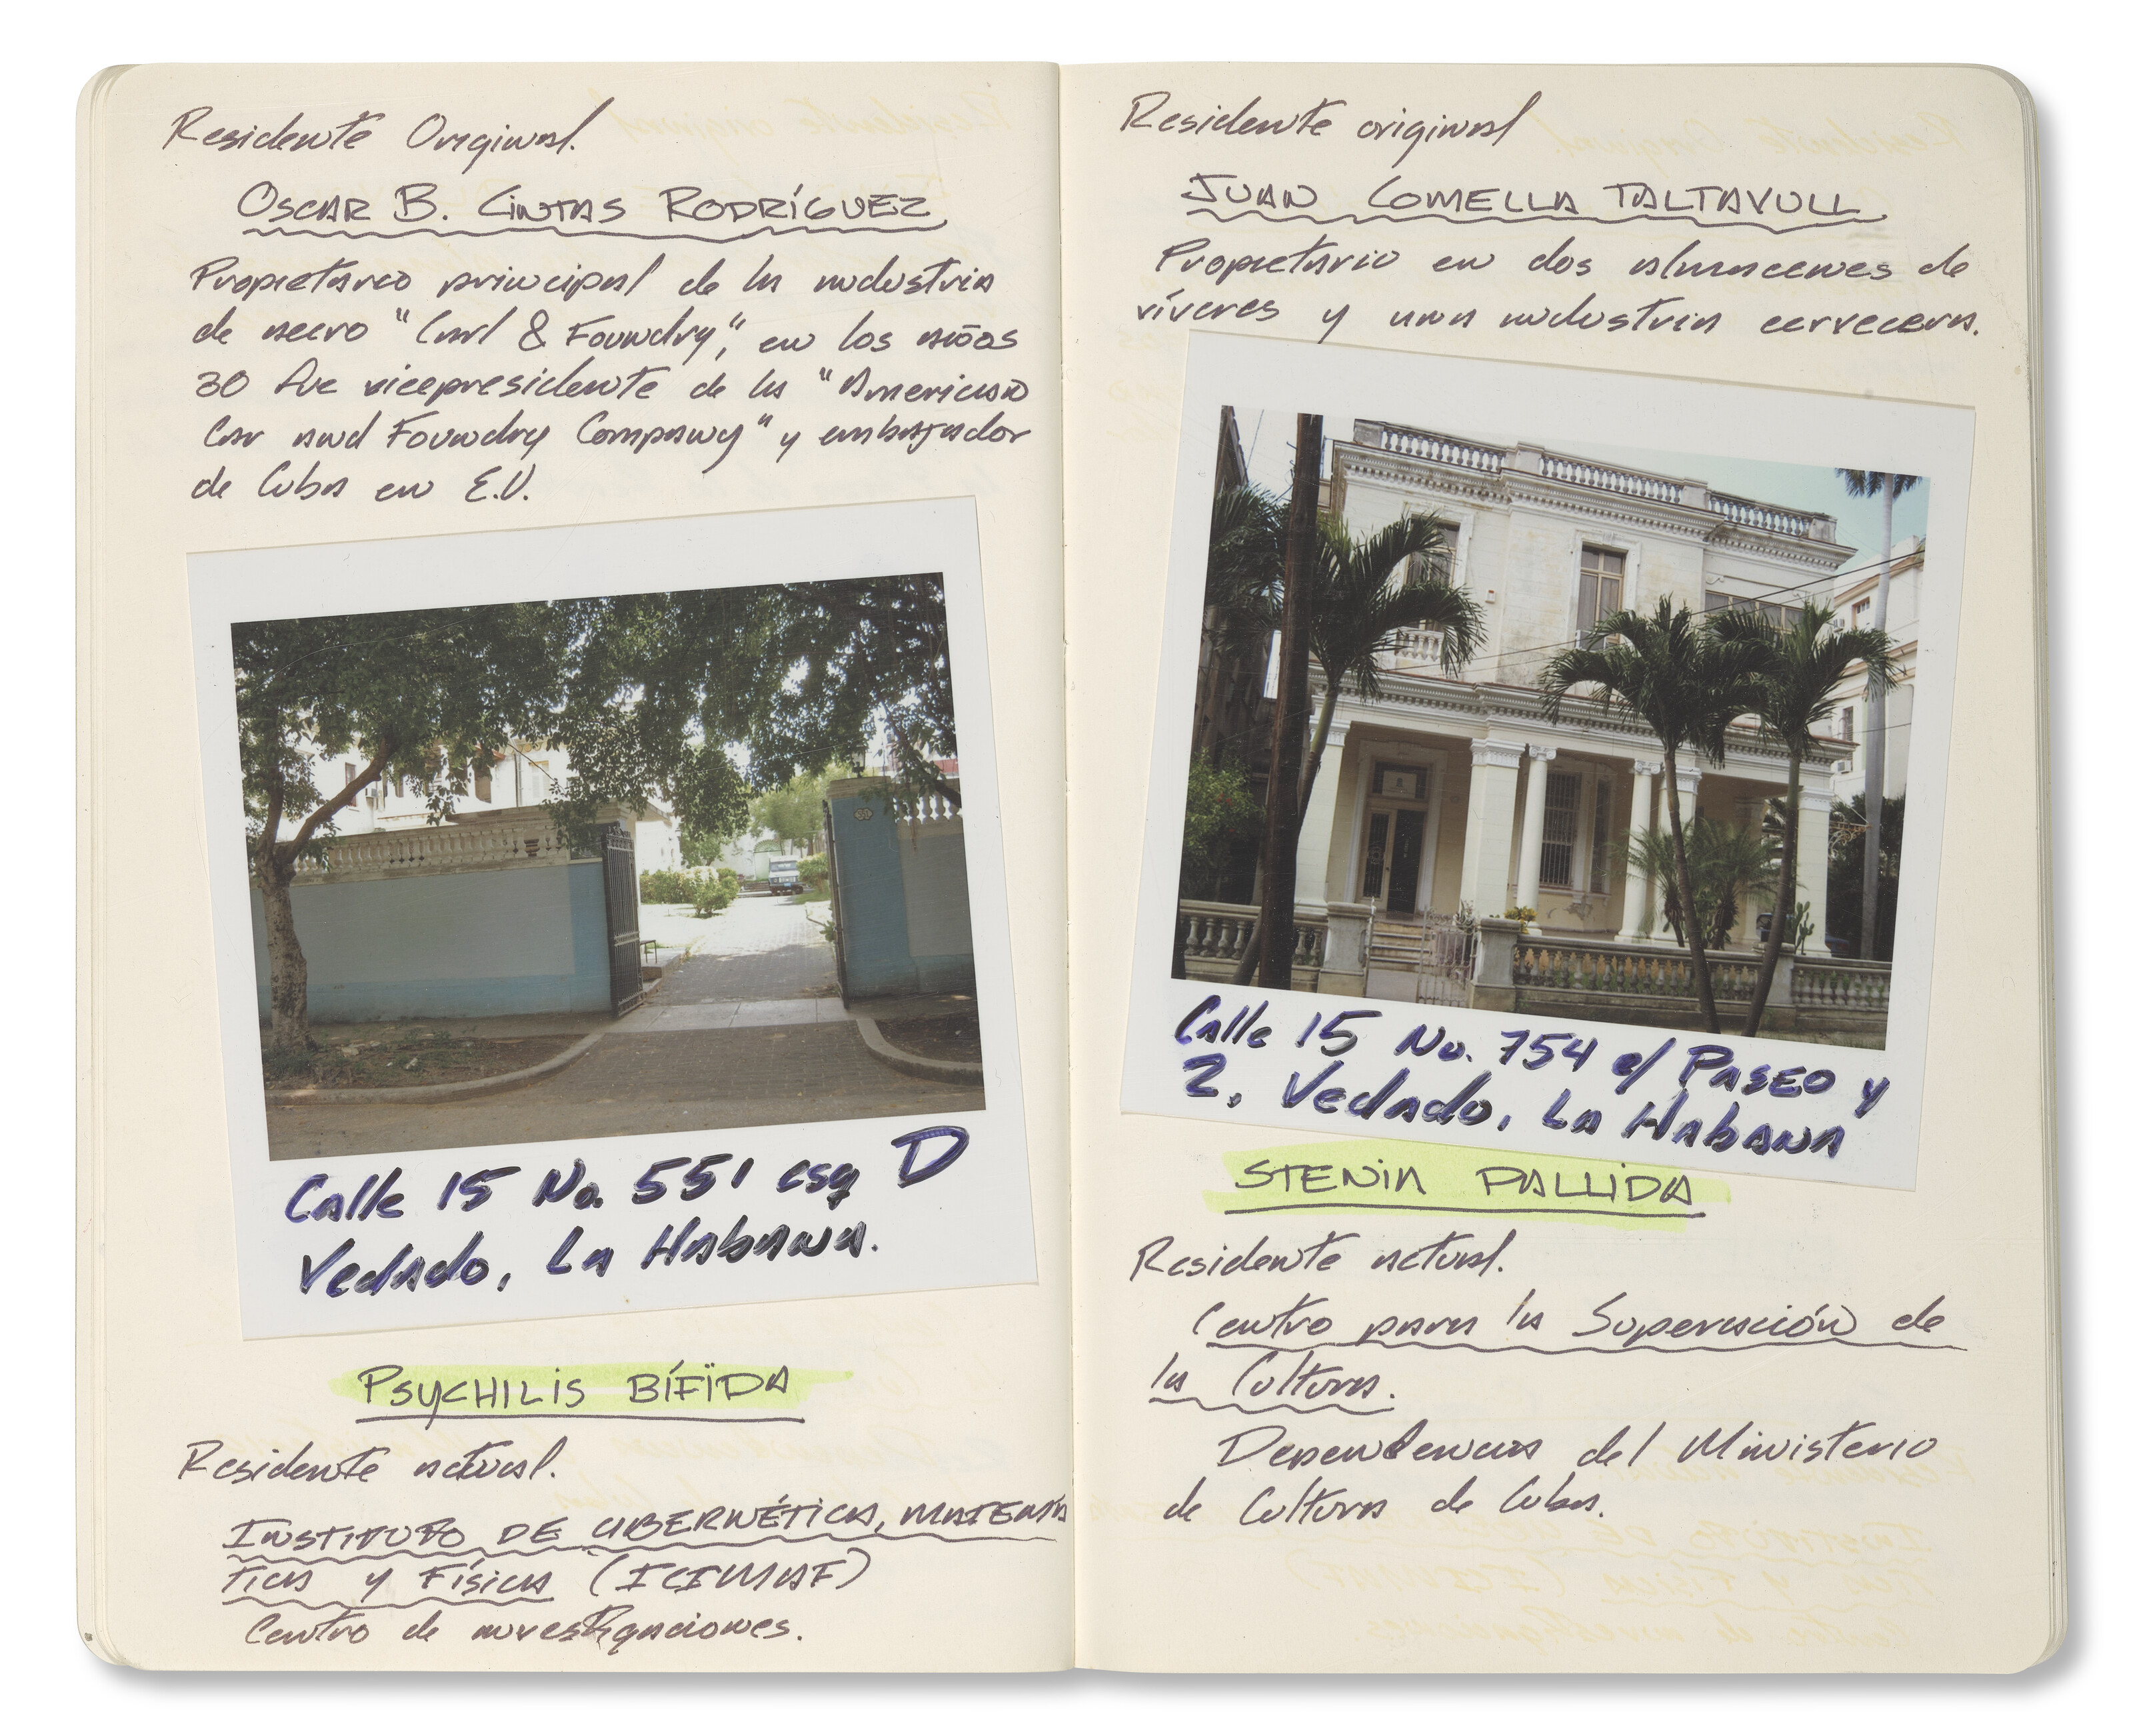 Residente Original.
OSCAR B. CINTAS RODRÍGUEZ
Propietareo principal de la industria
de acero "Carl & Foundry", en los años
30 fue vicepresidente de la "American
Car and Foundry Company" y embajador
de Cuba en E.U.
Calle 15 No. 551 esq D
Vedado, La Habana.
PSYCHILIS BÍFIDA
Residente actual.
INSTITUTO DE CIBERNÉTICA, MATEMÁ
TICA y FÍSICA (ICIMAF)
Centro de investigaciones.
Residente original
JUAN COMELLA TALTAVULL
Propietario en dos almacenes de
víveres y una industria cervecera.
Calle 15 No. 754 e/ PASEO y
2, Vedado, La Habana
STENIA PALLIDA
Residente actual.
Centro para la Superación de
la Cultura.
Dependencia del Ministerio
de Cultura de Cuba.